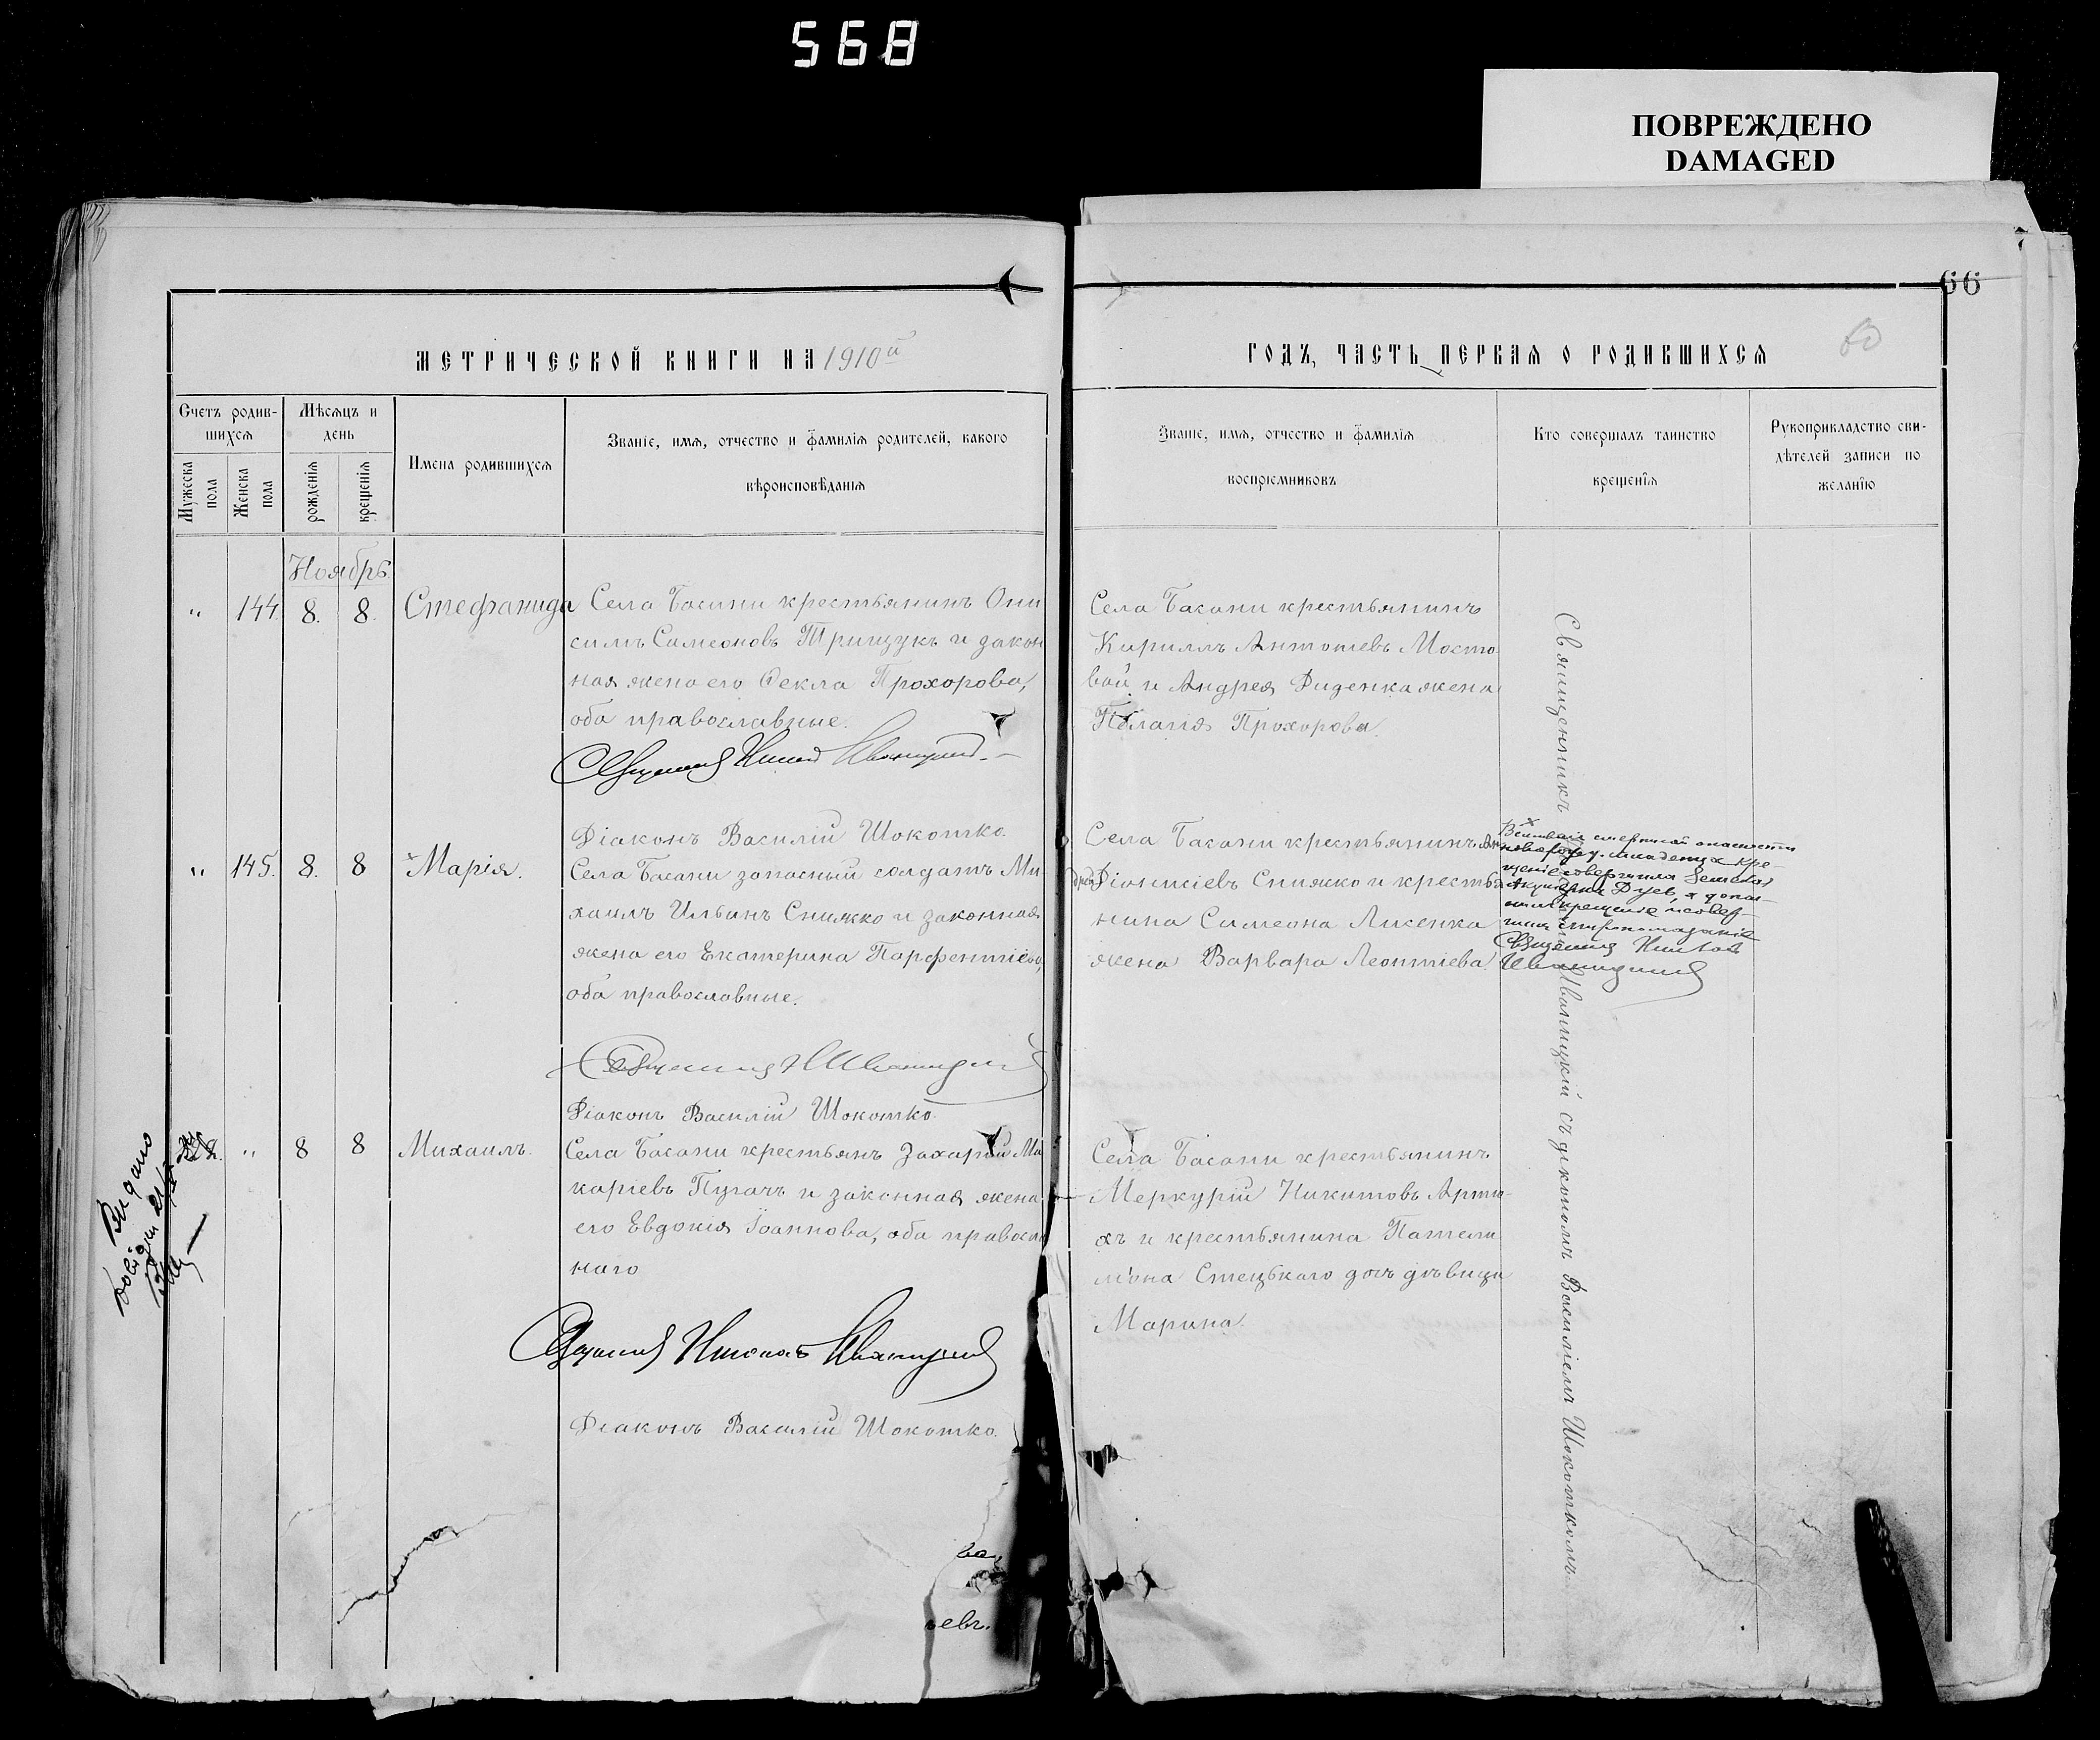 568
ПОВРЕЖДЕНО
DAMAGED
66
60
МЕТРИЧЕСКОЙ КНИГИ НА 1910й
ГОДЪ, ЧАСТЬ ПЕРВАЯ О РОДИВШИХСЯ
Счетъ родив-
шихся
Мужеска пола
Женска пола
Мѣсяцъ и
день
рожденія
крещенія
Имена родившихся
Званіе, имя, отчество и фамилія родителей, какого
вѣроисповѣданія
Званіе, имя, отчество и фамилія
воспріемниковъ
Кто совершалъ таинство
крещенія
Рукоприкладство сви-
дѣтелей записи по
желанію
Ноябрь
" 144. 8. 8. Стефанида
Села Басани крестьянинъ Они
симъ Симеоновъ Грищукъ и закон
ная жена его Ѳекла Прохорова,
оба православные.
Священникъ Николай Иваницкій
Діаконъ Василій Шокотко.
Села Басани крестьянинъ
Кириллъ Антоніевъ Мосто
вой и Андрея Диденка жена
Пелагія Прохорова.
" 145. 8. 8 Марія.
Села Басани запасный солдатъ Ми
хаилъ Ильинъ Снижко и законная
жена его Екатерина Парфентіева,
оба православные.
Священникъ Н Иваницкій
Діаконъ Василій Шокотко.
Села Басани крестьянинъ Ан
дрей Діонисіевъ Снижко и крестья
нина Симеона Лисенка
жена Варвара Леонтіева.
Вслѣдствіе смертной опасности
новорожд. младенца кре-
щеніе совершила Земская
Акушерка
крещеніе и совер-
шилъ миропомазаніе
Священникъ Николай
Иваницкій
" 8 8 Михаилъ.
Села Басани крестьянъ Захарій Ма
каріевъ Пугачъ и законная жена
его Евдокія Іоаннова, оба правосла
наго
Священникъ Николай Иваницкій
Діаконъ Василій Шокотко.
Села Басани крестьянинъ
Меркурій Никитовъ Артю-
хъ и крестьянина Пантели
мона Стецькаго дочь дѣвица
Марина.
Священникъ Иваницкій съ діакономъ Василіемъ Шокоткомъ.
Видано
евъ.